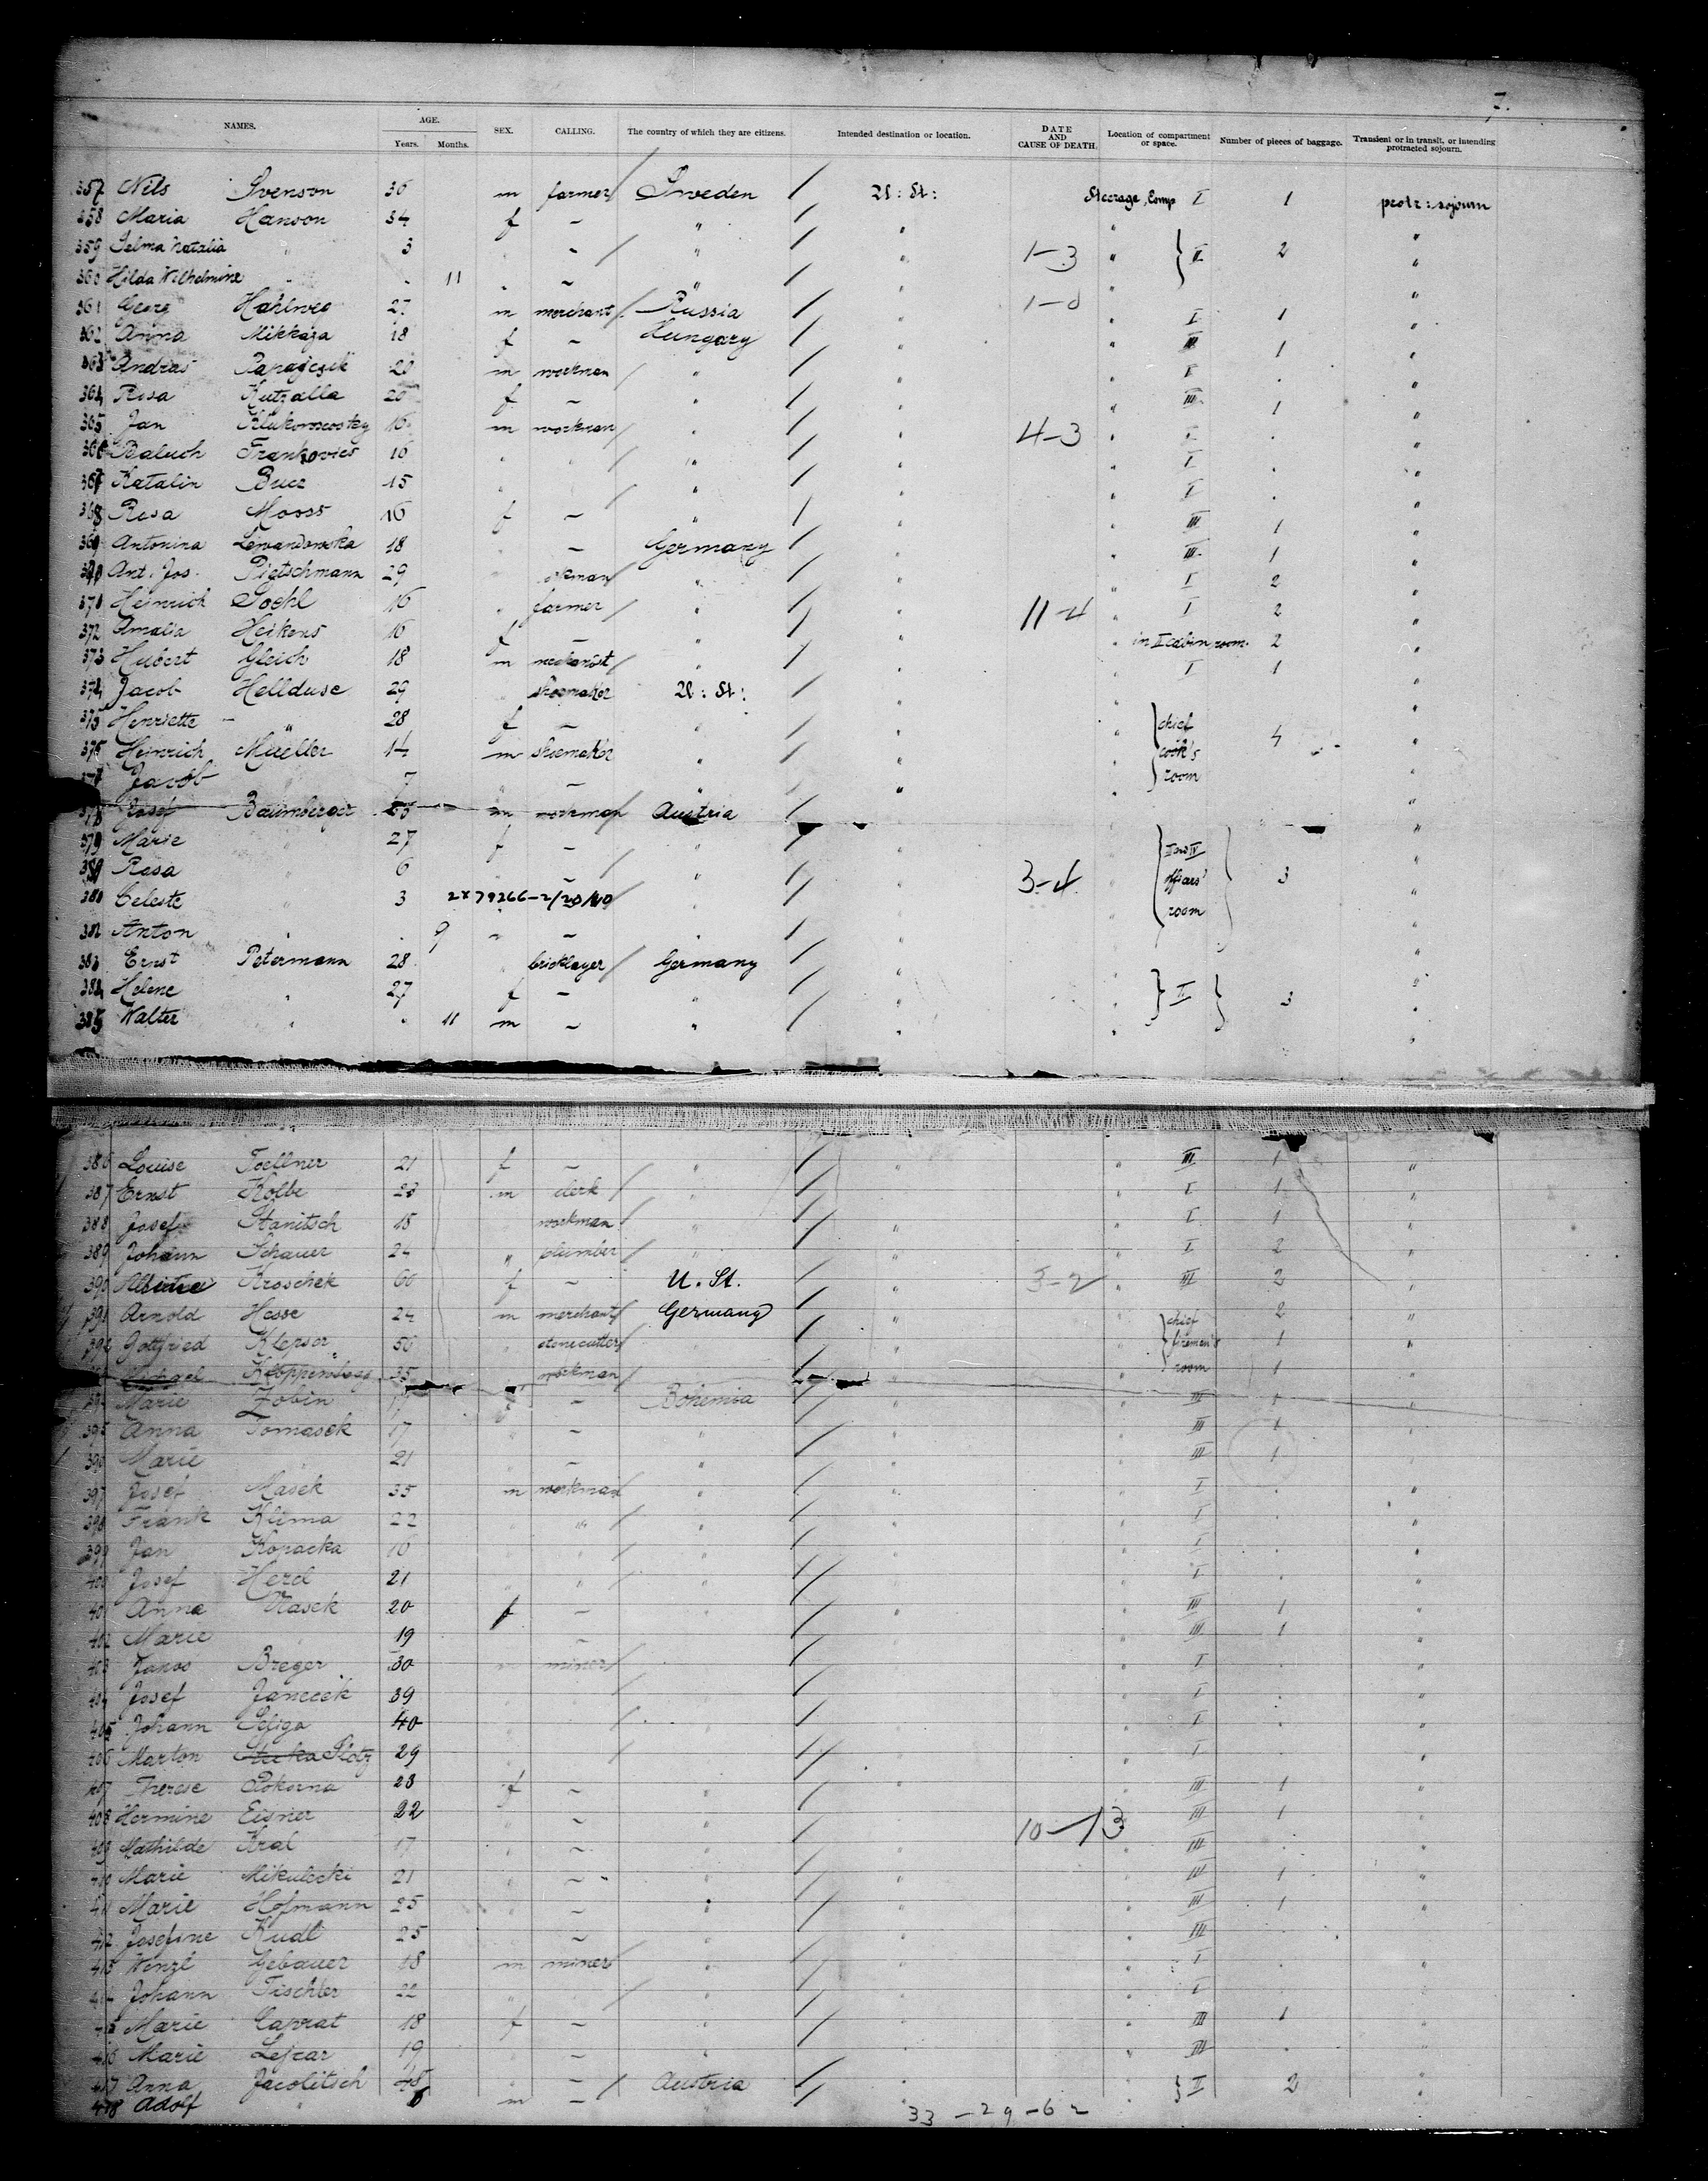 7.
NAMES. AGE. Years. Months. SEX. CALLING. The country of which they are citizens. Intended destination or location. DATE AND CAUSE OF DEATH. Location of compartment or space. Number of pieces of baggage. Transient or in transit, or intending protracted sojourn.
357 Nils Svenson 36 m farmer Sweden U: St: Steerage, Comp I 1 protr: sojourn
358 Maria Hanson 34 f – " " " "
359 Selma Natalia " 3 " – " " 1-3 " } II 2 "
360 Hilda Wilhelmine " 11 " – " " " "
361 Georg 27 m merchant Russia " 1- " I 1 "
362 Anna 18 f – Hungary " " III 1 "
363 Andras 20 m workman " " " I "
364 Rosa Kutzalla 20 f – " " " III 1 "
365 Jan 16 m workman " " 4-3 " I "
366 Frankovics 16 " " " " " I "
367 Katalin Bucz 15 " " " " I "
368 Rosa Mooss 16 f – " " " III 1 "
369 Antonina Lewandowska 18 " – Germany " " III 1 "
370 Ant. Jos. Pietschmann 29 " " " " I 2 "
371 Heinrich 16 " farmer " " 11-4 " I 2 "
372 Amalia Heikens 16 f – " " " in II cabin room 2 "
373 Hubert Gleich 18 m " " " I 1 "
374 Jacob Hellduse 29 shoemaker U: St: " " "
375 Henriette – " 28 f – " " " } chief 4 "
376 Heinrich Müeller 14 m shoemaker " " " cook's "
377 Jacob 7 " – " " " room "
378 Josef Baumberger m workman Austria "
379 Marie " 27 f – " " } II and IV "
380 Rosa " 6 – " " 3-4 " officers' 3 "
381 Celeste 3 2x79266-2/20/40 " " " room "
382 Anton " 9 " – " " "
383 Ernst Petermann 28 " bricklayer Germany " "
384 Helene " 27 f – " " " } II } 3 "
385 Walter " 11 m – " " " "
386 Louise Toellner 21 f – " " " III 1 "
387 Ernst Kolbe 23 m clerk " " " I 1 "
388 Josef Stanitsch 18 workman " " " I 1 "
389 Johann Schauer 24 " plumber " " " I 2 "
390 Kroschek 60 f – U. St. " 3-2 " III 2 "
391 Arnold Hesse 24 m merchant Germany " } chief 2 "
392 Gottfried Klepser 56 " stonecutter " " fireman's 1 "
35 workman " room 1 "
394 Marie Zobin 17 f – Bohemia " " III 1 "
395 Anna Tomasek 17 " – " " " III 1 "
396 Marie " 21 " – " " " III 1 "
397 Josef Masek 35 m workman " " " I "
398 Frank Klima 22 " " " " " I "
399 Jan Kopacka 16 " " " " I "
400 Josef Herd 21 " " " " " I "
401 Anna Vlasek 20 f – " " " III 1 "
402 Marie " 19 – " III 1 "
403 Janos Breger 30 m miner " I "
404 Josef Janecek 39 " " I "
405 Johann Seliga 40 " " " I "
406 Marton Plotz 29 " " " I "
407 Therese Pokorna 23 f – " " " III 1 "
408 Hermine Eisner 22 " – " " 10-13 " III 1 "
409 Mathilde Kral 17 " – " " " III "
410 Marie Mikulecki 21 " – " " " III 1 "
411 Marie Hofmann 25 " – " " " III 1 "
412 Josefine Kudl 25 – " " III "
413 Wenzl Gebauer 18 m miner " " " I "
414 Johann Tischler 22 " " " " I "
415 Marie Caprat 18 f – " " III 1 "
416 Marie Lejcar 19 " – " " " III "
417 Anna Jacolitsch 48 " – Austria " } II 2 "
418 Adolf " 6 m – " "
33 – 29 – 62